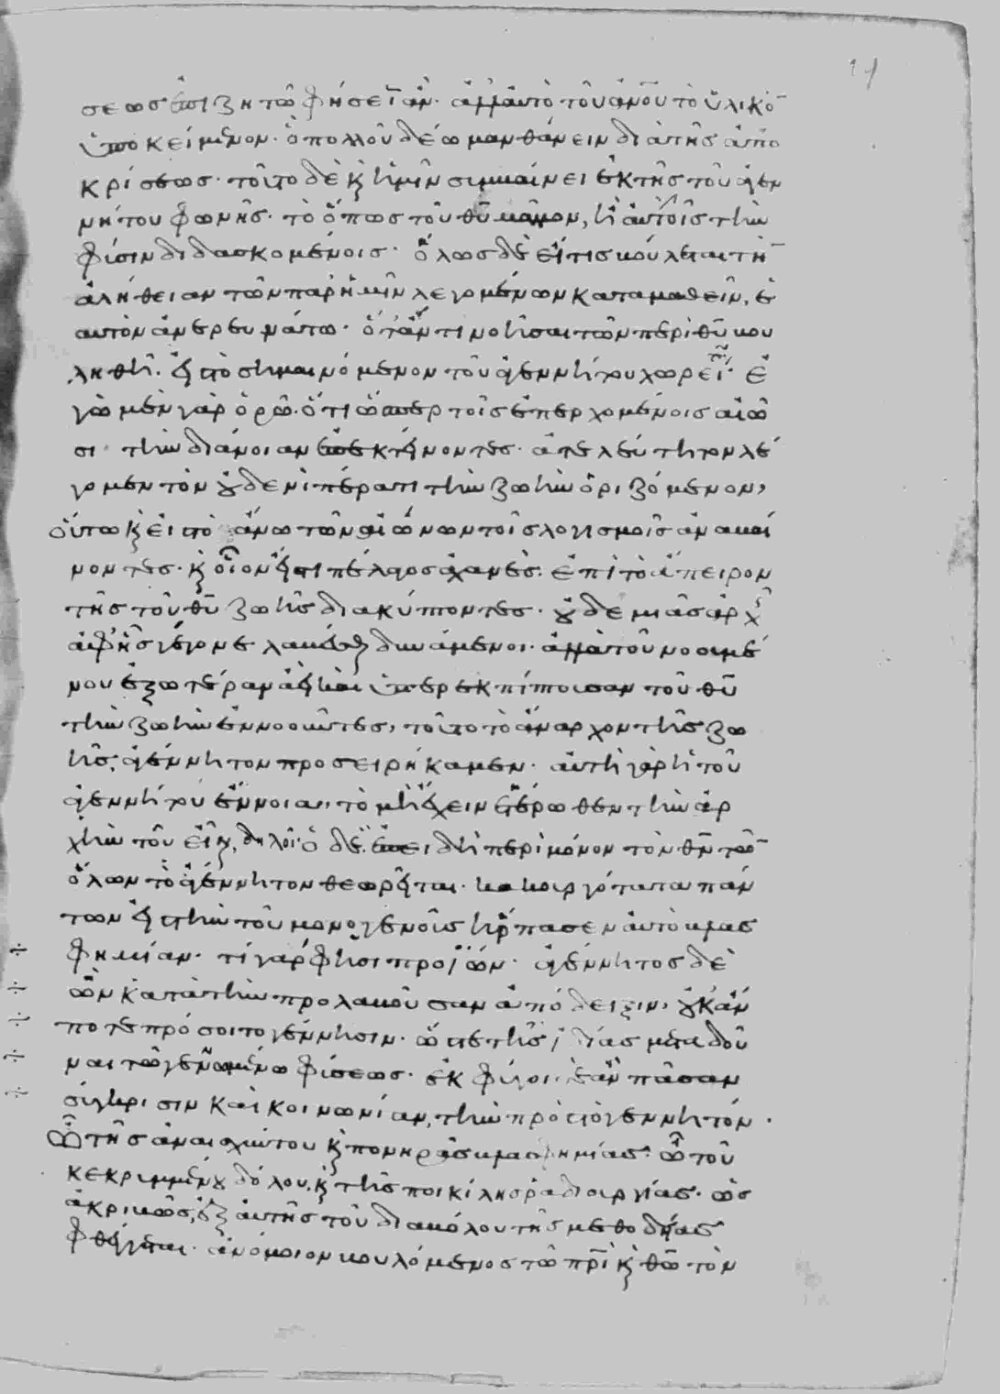 σεως ἐπιζητῶ φήσειεν ἄν. ἀλλ' αὐτὸ τοῦ ἀνοῦ τὸ ὑλικὸ
ὑποκείμενον. ὃ πολλοῦ δέω μανθάνειν διὰ τῆς ἀπο
κρίσεως. τοῦτο δὲ κ ἡμῖν συμβαίνει ἐκ τῆς τοῦ ἀγεν
νήτου φωνῆς. τὸ ὅπως τοῦ θῦ μᾶλλον, ἢ αὐτοῖς τὴν
φύσιν διδασκομένοις. ὅλως δὲ εἴ τις βούλεται τὴ
ἀλήθειαν τῶν παρ' ἡμῖν λεγομένων καταμαθεῖν, ἑ
αυτὸν ἀνερευνάτω. ὅτάν τι νοῆσαι τῶν περὶ θῦ βου
ληθῇ. εἰς τὸ σημαινόμενον τοῦ ἀγεννήτου χωρεῖ. ἐ
γὼ μὲν γὰρ ὁρῶ. ὅτι ὥσπερ τοῖς ἐπερχομένοις αἰῶ
σι τὴν διάνοιαν ἐπεκτείνοντες. ἀτελεύτητον λέ
γομεν τὸν οὐδενὶ πέρατι τὴν ζωὴν ὁριζόμενον,
οὕτω κ εἰς τὸ ἄνω τῶν αἰώνων τοῖς λογισμοῖς ἀναβαί
νοντες. κ οἷον εἴς τι πέλαγος ἀχανὲς. ἐπὶ τὸ ἄπειρον
τῆς τοῦ θῦ ζωῆς διακύπτοντες. οὐδεμιᾶς ἀρχ
ἀφ' ἧς γέγονε λαβέσθαι δυνάμενοι. ἀλλὰ τοῦ νοουμέ
νου ἐξωτέραν ἀεὶ καὶ ὑπερεκπίπτουσαν τοῦ θῦ
τὴν ζωὴν ἐννοοῦντες, τοῦτο τὸ ἄναρχον τῆς ζω
ῆς, ἀγέννητον προσειρήκαμεν. αὕτη γὰρ ἡ τοῦ
ἀγεννήτου ἔννοια, τὸ μὴ ἔχειν ἑτέρωθεν τὴν ἀρ
χὴν τοῦ εἶναι, δηλοῖ. ὁ δὲ ἐπειδὴ περὶ μόνον τὸν θν τῶ
ὅλων τὸ ἀγέννητον θεωρεῖται. κακουργότατα πάν
των εἰς τὴν τοῦ μονογενοῦς ἥρπασεν αὐτὸ βλασ
φημίαν. τί γὰρ φησι προϊών. ἀγέννητος δὲ
ὢν κατὰ τὴν προλαβοῦσαν ἀπόδειξιν, οὐκ ἄν
ποτε πρόσοιτο γέννησιν. ὥστε τῆς ἰδίας μεταδοῦ
ναι τῷ γενωμένω φύσεως. ἐκφύγοι ἂν πᾶσαν
σύγκρισιν καὶ κοινωνίαν, τὴν πρὸς τὸ γεννητόν.
ὢ τῆς ἀναισχύντου κ πονηρᾶς βλασφημίας. ὢ τοῦ
κεκρυμμένου δόλου, κ τῆς ποικίλης ῥαδιουργίας. ὡς
ἀκριβῶς, ἐξ αὐτῆς τοῦ διαβόλου τῆς μεθοδείας
φθέγγεται. ἀνόμοιον βουλόμενος τῷ πρὶ κ θῶ τὸν